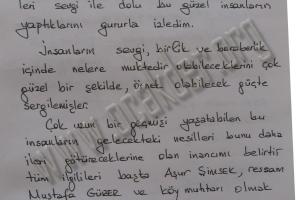 leri sevgi ile dolu bu güzel insanların
yaptıklarını gururla izledim.
İnsanların sevgi, birlik ve beraberlik
içinde nelere muktedir olabileceklerini çok
güzel bir şekilde, örnek olabilecek güçte
sergilemişler.
Çok uzun bir geçmişi yaşatabilen bu
insanların gelecekteki nesilleri bunu daha
ileri götüreceklerine olan inancımı belirtir
tüm ilgilileri başta Aşur Şimşek, ressam
Mustafa GÜRER ve köy muhtarı olmak